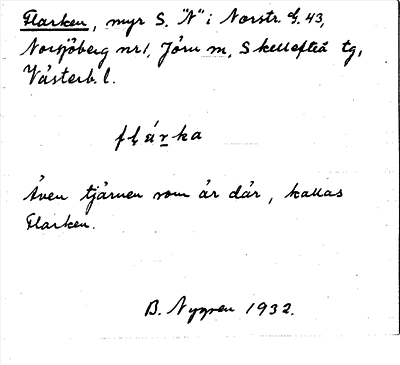 Flarken, myr S. "N" i Norstr. å. 43,
Norsjöberg nr 1, Jörn m, Skellefteå tg,
Västerb. l.
flárka
Även tjärnen som är där, kallas
Flarken.
B. Nygren 1932.